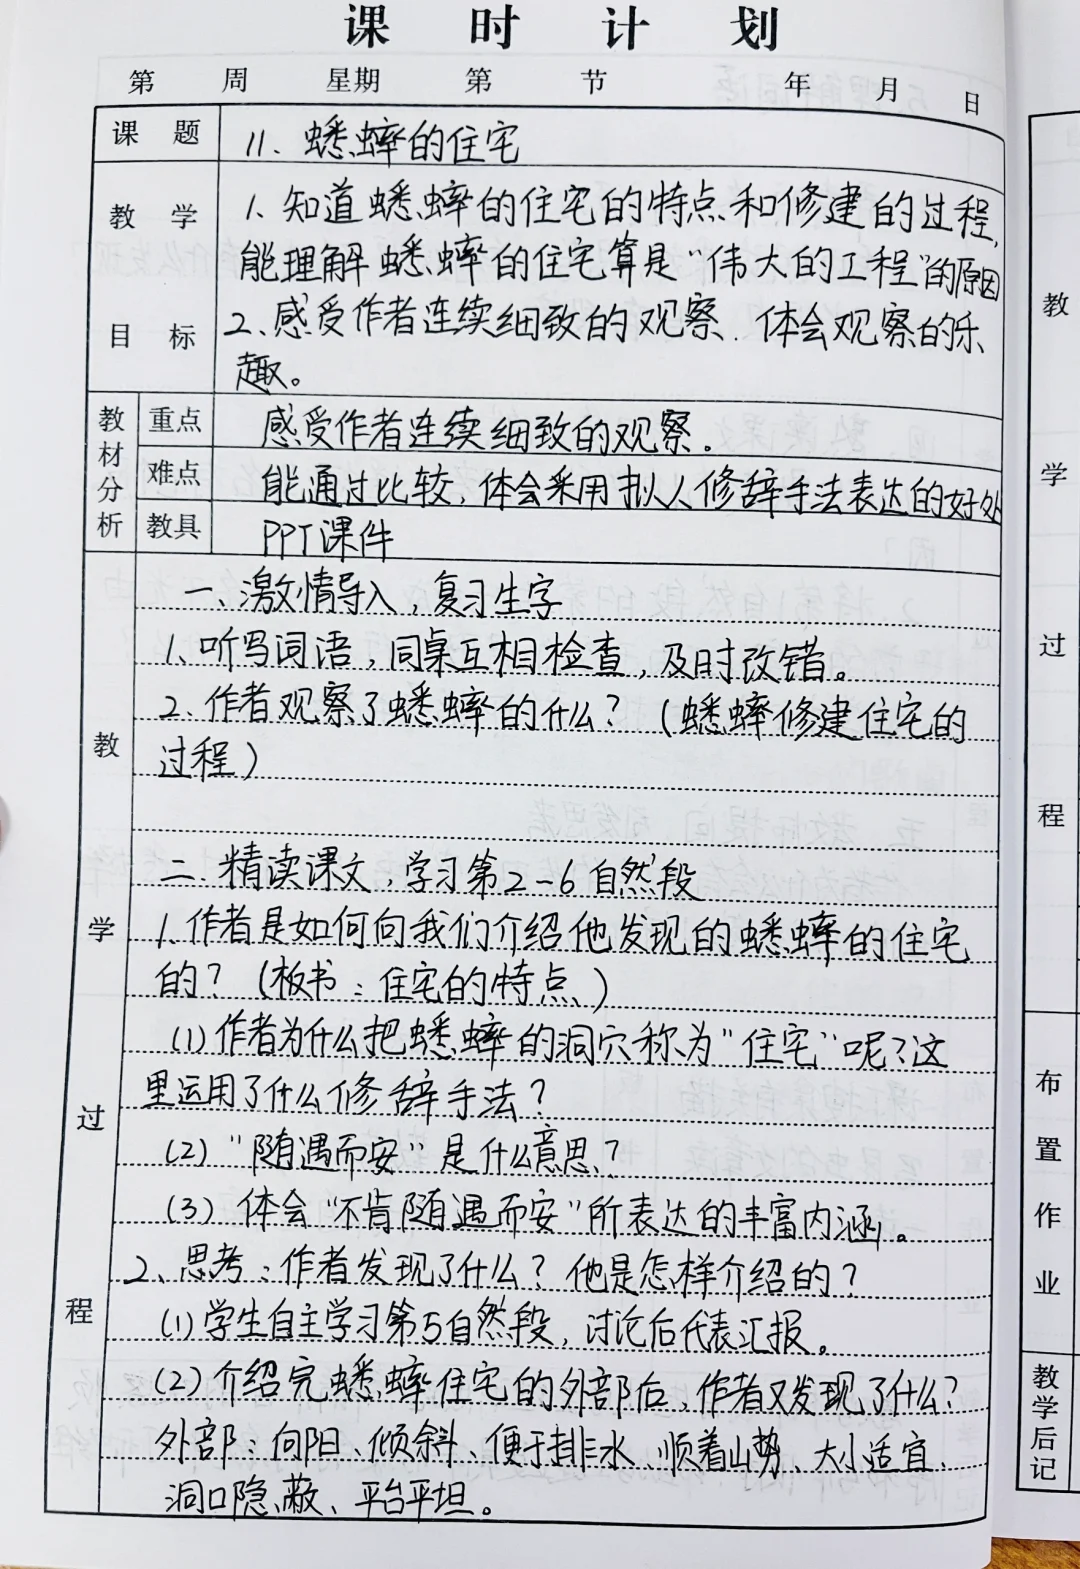 课时计划
第 周 星期 第 节 年 月 日
课题 11、蟋蟀的住宅
教学目标
1、知道蟋蟀的住宅的特点和修建的过程,
能理解蟋蟀的住宅算是“伟大的工程”的原因
2、感受作者连续细致的观察、体会观察的乐
趣。
教材分析
重点 感受作者连续细致的观察。
难点 能通过比较,体会采用拟人修辞手法表达的好处
教具 PPT课件
教学过程
一、激情导入,复习生字
1、听写词语,同桌互相检查,及时改错。
2、作者观察了蟋蟀的什么?(蟋蟀修建住宅的
过程)
二、精读课文,学习第2-6自然段
1、作者是如何向我们介绍他发现的蟋蟀的住宅
的?(板书:住宅的特点)
(1)作者为什么把蟋蟀的洞穴称为“住宅”呢?这
里运用了什么修辞手法?
(2)“随遇而安”是什么意思?
(3)体会“不肯随遇而安”所表达的丰富内涵。
2、思考:作者发现了什么?他是怎样介绍的?
(1)学生自主学习第5自然段,讨论后代表汇报。
(2)介绍完蟋蟀住宅的外部后,作者又发现了什么?
外部:向阳、倾斜、便于排水、顺着山势、大小适宜、
洞口隐蔽、平台平坦。
教
学
过
程
布
置
作
业
教学后记